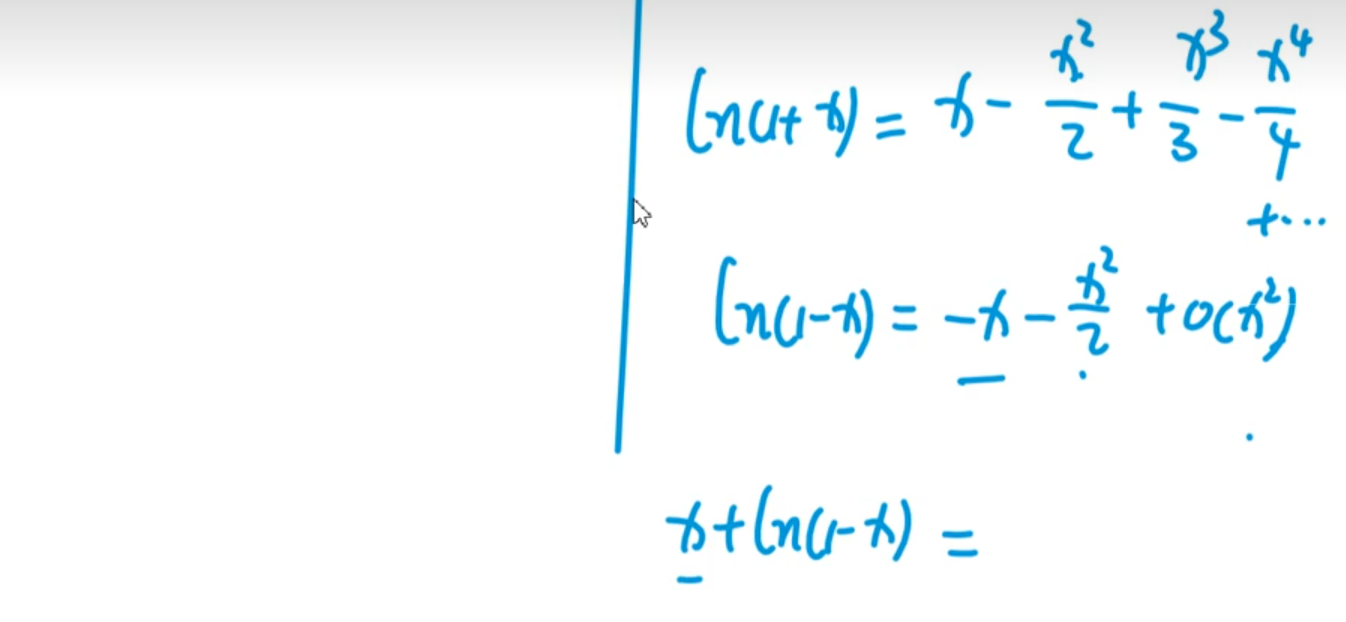 ln(1+x) = x - x²/2 + x³/3 - x⁴/4
+...
ln(1-x) = -x - x²/2 + o(x²)
x+ln(1-x) =